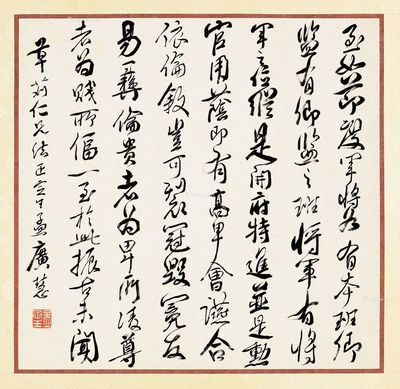 至如節度軍將各有本班卿
監有卿監之班將軍有將
軍之位縱是開府特進並是勳
官用蔭即有高卑會讌合
依倫敘豈可裂冠毀冕反
易彝倫貴者為卑所凌尊
者為賤所偪一至於此振古未聞
仁兄法正 孟廣慧